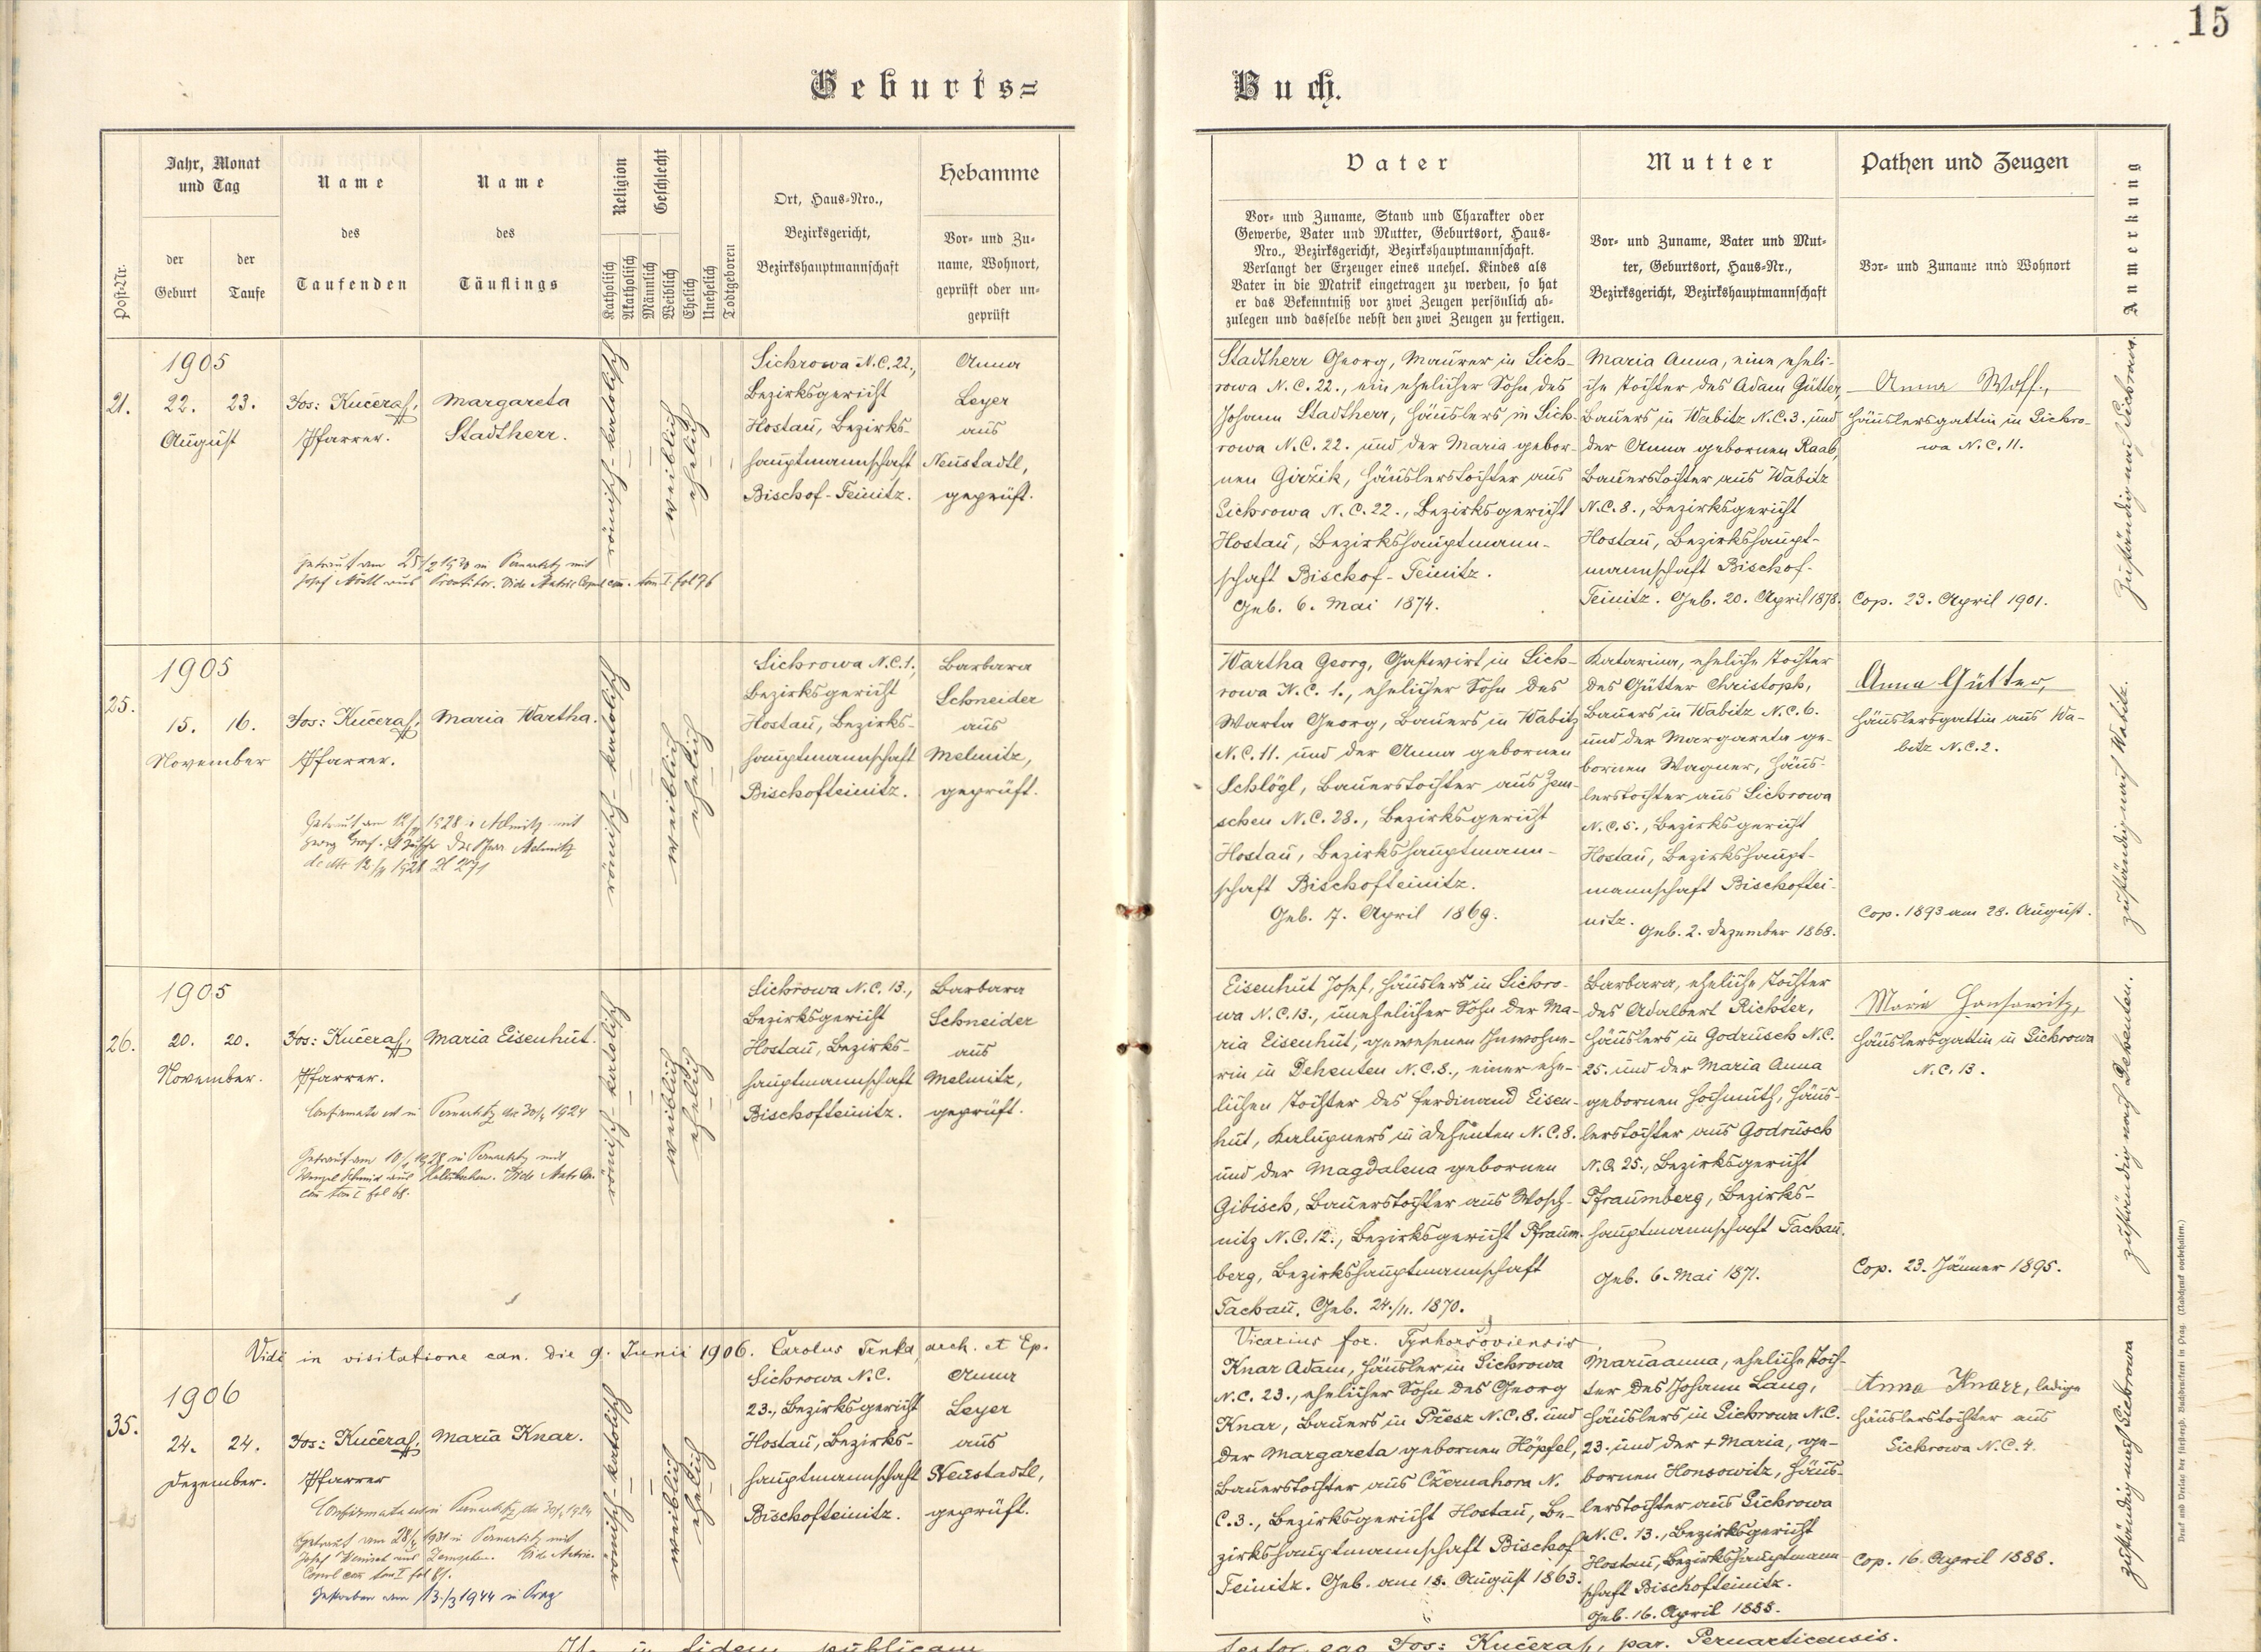 15
Geburts=
Buch.
Post-Nr.
Jahr, Monat
und Tag
der
Geburt
der
Taufe
Name
des
Taufenden
Name
des
Täuflings
Religion
Katholisch
Akatholisch
Geschlecht
Männlich
Weiblich
Ehelich
Unehelich
Todtgeboren
Ort, Haus-Nro.,
Bezirksgericht,
Bezirkshauptmannschaft
Hebamme
Vor- und Zu-
name, Wohnort,
geprüft oder un-
geprüft
Vater
Vor- und Zuname, Stand und Charakter oder
Gewerbe, Vater und Mutter, Geburtsort, Haus-
Nro., Bezirksgericht, Bezirkshauptmannschaft.
Verlangt der Erzeuger eines unehel. Kindes als
Vater in die Matrik eingetragen zu werden, so hat
er das Bekenntniß vor zwei Zeugen persönlich ab-
zulegen und dasselbe nebst den zwei Zeugen zu fertigen.
Mutter
Vor- und Zuname, Vater und Mut-
ter, Geburtsort, Haus-Nr.,
Bezirksgericht, Bezirkshauptmannschaft
Pathen und Zeugen
Vor- und Zuname und Wohnort
Anmerkung
21.
1905
22. 23.
August
Jos: Kučera,
Pfarrer.
Margareta
Stadtherr.
römisch-katolisch
weiblich
ehelich
Sichrowa N.C. 22.,
Bezirksgericht
Hostau, Bezirks-
hauptmannschaft
Bischof-Teinitz.
Anna
Leyer
aus
Neustadtl,
geprüft.
Getraut am
in Pernartitz mit
Josef
aus
tom I. fol 76
Stadtherr Georg, Maurer in Sich-
rowa N.C. 22., ein ehelicher Sohn des
Johann Stadtherr, Häuslers in Sich-
rowa N.C. 22. und der Maria gebor-
nen Girzik, Häuslerstochter aus
Sichrowa N.C. 22., Bezirksgericht
Hostau, Bezirkshauptmann-
schaft Bischof-Teinitz.
Geb. 6. Mai 1874.
Maria Anna, eine eheli-
che Tochter des Adam Gütter,
Bauers in Wabitz N.C. 3. und
der Anna gebornen Raab,
Bauerstochter aus Wabitz
N.C. 8., Bezirksgericht
Hostau, Bezirkshaupt-
mannschaft Bischof-
Teinitz. Geb. 20. April 1878.
Anna Wolf,
Häuslersgattin in Sichro-
wa N.C. 11.
Cop. 23. April 1901.
Zuständig nach Sichrowa.
25.
1905
15. 16.
November
Jos: Kučera,
Pfarrer.
Maria Wartha.
römisch-katolisch
weiblich
ehelich
Sichrowa N.C. 1.,
Bezirksgericht
Hostau, Bezirks-
hauptmannschaft
Bischofteinitz.
Barbara
Schneider
aus
Melmitz,
geprüft.
Getraut am
1928 in Melmitz mit
Georg Graf.
Wartha Georg, Gastwirt in Sich-
rowa N.C. 1., ehelicher Sohn des
Warta Georg, Bauers in Wabitz
N.C. 11. und der Anna gebornen
Schlögl, Bauerstochter aus Zem-
schen N.C. 28., Bezirksgericht
Hostau, Bezirkshauptmann-
schaft Bischofteinitz.
Geb. 17. April 1869.
Katarina, eheliche Tochter
des Gütter Christoph,
Bauers in Wabitz N.C. 6.
und der Margareta ge-
bornen Wagner, Häus-
lerstochter aus Sichrowa
N.C. 5., Bezirksgericht
Hostau, Bezirkshaupt-
mannschaft Bischoftei-
nitz. Geb. 2. Dezember 1868.
Anna Gütter,
Häuslersgattin aus Wa-
bitz N.C. 2.
Cop. 1893 am 28. August.
zuständig nach Wabitz.
26.
1905
20. 20.
November.
Jos: Kučera,
Pfarrer.
Maria Eisenhut.
römisch-katolisch
weiblich
ehelich
Sichrowa N.C. 13.,
Bezirksgericht
Hostau, Bezirks-
hauptmannschaft
Bischofteinitz.
Barbara
Schneider
aus
Melmitz,
geprüft.
Confirmata est in Pernartitz
1924
Getraut am
1928 in Pernartitz mit
Wenzel Schmid aus
tom I fol 68.
Eisenhut Josef, Häuslers in Sichro-
wa N.C. 13., unehelicher Sohn der Ma-
ria Eisenhut, gewesenen Inwohne-
rin in Dehenten N.C. 8., einer ehe-
lichen Tochter des Ferdinand Eisen-
hut, Kalupners in Dehenten N.C. 8.
und der Magdalena gebornen
Gibisch, Bauerstochter aus Wosch-
nitz N.C. 12., Bezirksgericht Pfraum-
berg, Bezirkshauptmannschaft
Tachau. Geb. 24./11. 1870.
Barbara, eheliche Tochter
des Adalbert Richter,
Häuslers in Godrusch N.C.
25. und der Maria Anna
gebornen Hochmuth, Häus-
lerstochter aus Godrusch
N.C. 25., Bezirksgericht
Pfraumberg, Bezirks-
hauptmannschaft Tachau.
Geb. 6. Mai 1871.
Maria Honsowitz,
Häuslersgattin in Sichrowa
N.C. 13.
Cop. 23. Jänner 1895.
zuständig nach Dehenten.
Vidi in visitatione can. die 9. Junii 1906. Carolus Trnka, arch. et Ep.
Vicarius for. Tynhorsoviensis
35.
1906
24. 24.
Dezember.
Jos: Kučera,
Pfarrer
Maria Knar.
römisch-katolisch
weiblich
ehelich
Sichrowa N.C.
23., Bezirksgericht
Hostau, Bezirks-
hauptmannschaft
Bischofteinitz.
Anna
Leyer
aus
Neustadtl,
geprüft.
Confirmata est in Pernartitz
1924
Getraut am
1931 in Pernartitz mit
Josef
aus Zemschen.
tom I fol 81.
Gestorben am 13./3 1944 in Prag
Knar Adam, Häusler in Sichrowa
N.C. 23., ehelicher Sohn des Georg
Knar, Bauers in Přesz N.C. 8. und
der Margareta gebornen Höpfel,
Bauerstochter aus Czernahora N.
C. 3., Bezirksgericht Hostau, Be-
zirkshauptmannschaft Bischof
Teinitz. Geb. am 18. August 1863.
Mariaanna, eheliche Toch-
ter des Johann Lang,
Häuslers in Sichrowa N.C.
23. und der + Maria, ge-
bornen Honsowitz, Häus-
lerstochter aus Sichrowa
N.C. 13., Bezirksgericht
Hostau, Bezirkshauptmann-
schaft Bischofteinitz.
Geb. 16. April 1888.
Anna Knarr, ledige
Häuslerstochter aus
Sichrowa N.C. 4.
Cop. 16. April 1888.
zuständig nach Sichrowa
in fidem publicam
testor ego Jos: Kučera, par. Pernarticensis.
Druck und Verlag der fürsterzb. Buchdruckerei in Prag. (Nachdruck vorbehalten.)